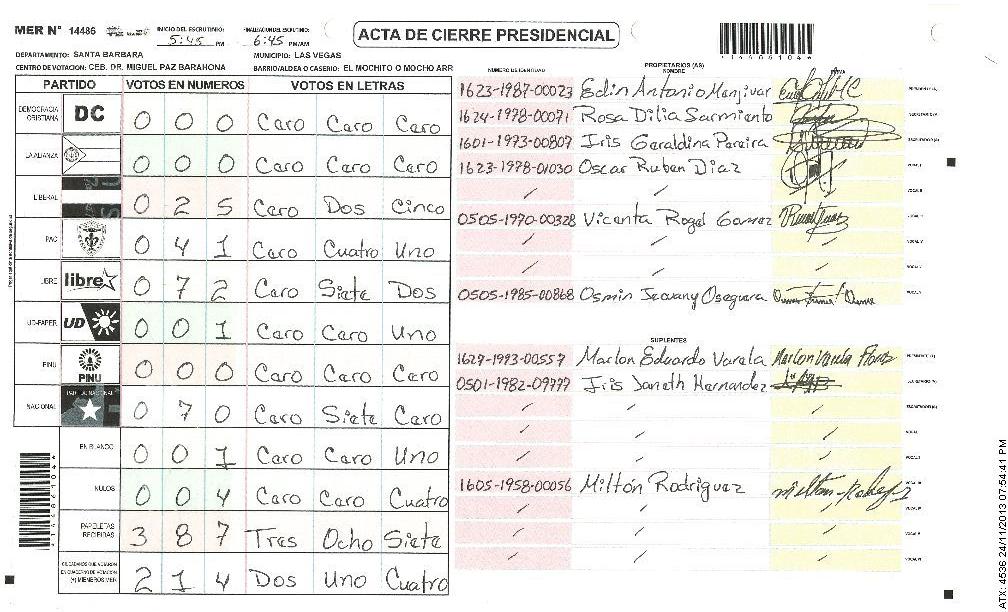 MER N° 14486 INICIO DEL ESCRUTINIO: 5:45 PM FINALIZACION DEL ESCRUTINIO: 6:45 PM/AM ACTA DE CIERRE PRESIDENCIAL
DEPARTAMENTO: SANTA BARBARA MUNICIPIO: LAS VEGAS
CENTRO DE VOTACION: CEB. DR. MIGUEL PAZ BARAHONA BARRIO/ALDEA O CASERIO: EL MOCHITO O MOCHO ARR
PARTIDO VOTOS EN NUMEROS VOTOS EN LETRAS
DEMOCRACIA CRISTIANA DC 0 0 0 Caro Caro Caro
LA ALIANZA 0 0 0 Caro Caro Caro
LIBERAL 0 2 5 Caro Dos Cinco
PAC 0 4 1 Caro Cuatro Uno
LIBRE libre 0 7 2 Caro Siete Dos
UD-FAPER UD 0 0 1 Caro Caro Uno
PINU PINU 0 0 0 Caro Caro Caro
NACIONAL PARTIDO NACIONAL 0 7 0 Caro Siete Caro
EN BLANCO 0 0 1 Caro Caro Uno
NULOS 0 0 4 Caro Caro Cuatro
PAPELETAS RECIBIDAS 3 8 7 Tres Ocho Siete
CIUDADANOS QUE VOTARON EN CUADERNO DE VOTACION (+) MIEMBROS MER 2 1 4 Dos Uno Cuatro
PROPIETARIOS (AS)
NUMERO DE IDENTIDAD NOMBRE FIRMA
1623-1987-00023 Edin Antonio Menjivar
1624-1978-00071 Rosa Dilia Sarmiento
1601-1973-00807 Iris Geraldina Pereira
1623-1978-01030 Oscar Ruben Diaz
0505-1970-00328 Vicenta Rogel Gomez
0505-1985-00868 Osmin Jeovany Oseguera
SUPLENTES
1627-1993-00557 Marlon Eduardo Varela Marlon Varela
0501-1982-09777 Iris Janeth Hernandez
1605-1958-00056 Miltón Rodriguez milton Rodriguez
*14486104*
ATX: 4536 24/11/2013 07:54:41 PM